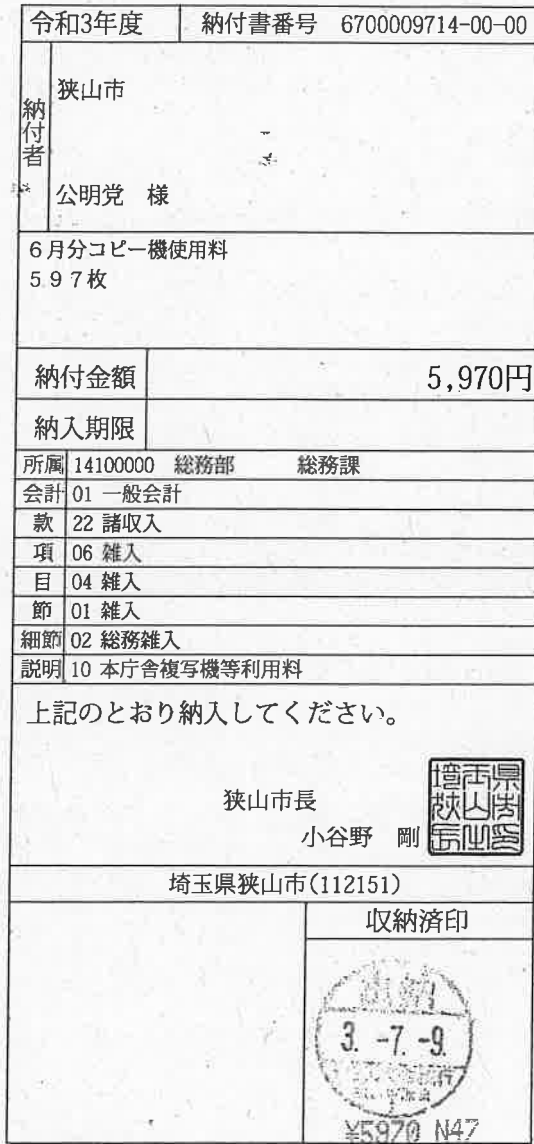 令和3年度 納付書番号 6700009714-00-00
納付者
狭山市
公明党 様
6月分コピー機使用料
597枚
納付金額 5,970円
納入期限
所属 14100000 総務部 総務課
会計 01 一般会計
款 22 諸収入
項 06 雑入
目 04 雑入
節 01 雑入
細節 02 総務雑入
説明 10 本庁舎複写機等利用料
上記のとおり納入してください。
狭山市長
小谷野 剛
埼玉県狭山市(112151)
収納済印
3. -7. -9.
¥5970 N47